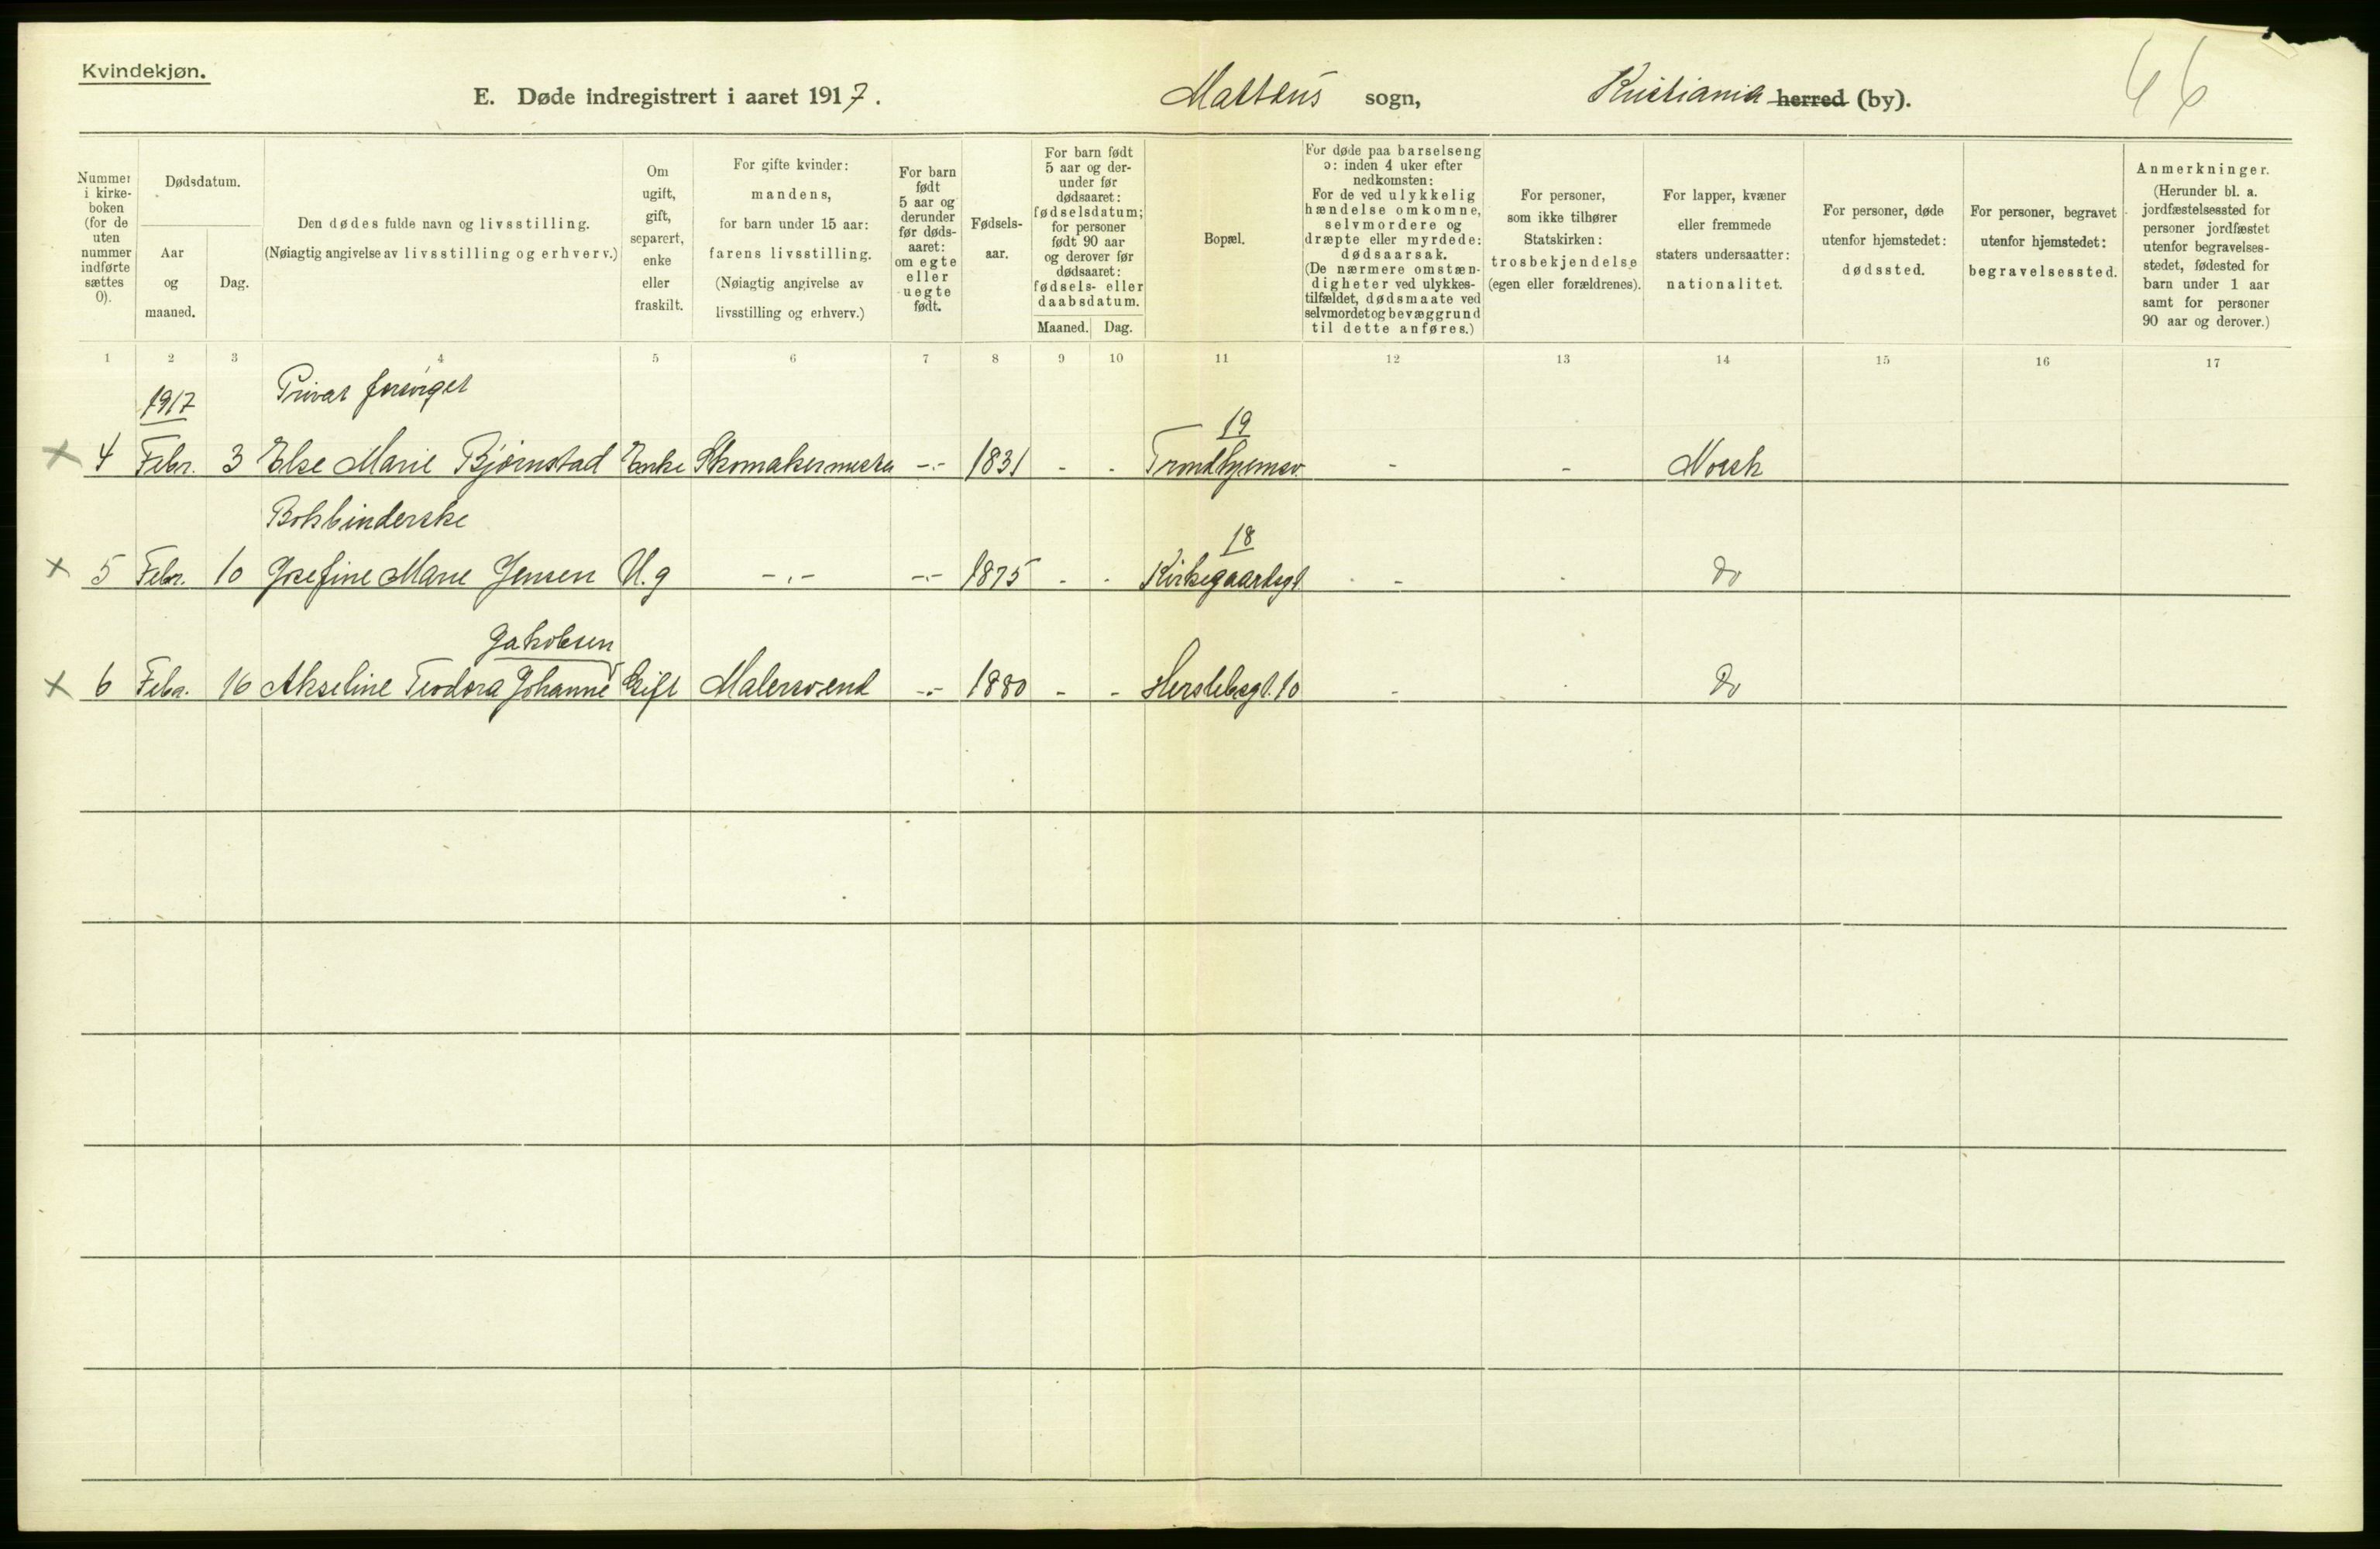 Kvindekjøn.
E. Døde indregistrert i aaret 1917.
Matteus sogn,
Kristiania herred (by).
66
Nummer i kirkeboken (for de uten nummer indførte sættes 0).
Dødsdatum.
Aar og maaned.
Dag.
Den dødes fulde navn og livsstilling.
(Nøiagtig angivelse av livsstilling og erhverv.)
Om ugift, gift, separert, enke eller fraskilt.
For gifte kvinder: mandens, for barn under 15 aar: farens livsstilling. (Nøiagtig angivelse av livsstilling og erhverv.)
For barn født 5 aar og derunder før dødsaaret: om egte eller uegte født.
Fødselsaar.
For barn født 5 aar og derunder før dødsaaret: fødselsdatum; for personer født 90 aar og derover før dødsaaret: fødsels- eller daabsdatum.
Maaned. Dag.
Bopæl.
For døde paa barselseng ɔ: inden 4 uker efter nedkomsten: For de ved ulykkelig hændelse omkomne, selvmordere og dræpte eller myrdede: dødsaarsak. (De nærmere omstændigheter ved ulykkestilfældet, dødsmaate ved selvmordet og bevæggrund til dette anføres.)
For personer, som ikke tilhører Statskirken: trosbekjendelse (egen eller forældrenes).
For lapper, kvæner eller fremmede staters undersaatter: nationalitet.
For personer, døde utenfor hjemstedet: dødssted.
For personer, begravet utenfor hjemstedet: begravelsessted.
Anmerkninger. (Herunder bl. a. jordfæstelsessted for personer jordfæstet utenfor begravelsesstedet, fødested for barn under 1 aar samt for personer 90 aar og derover.)
1 2 3 4 5 6 7 8 9 10 11 12 13 14 15 16 17
1917 Privat forsørget
19
× 4 Febr. 3 Else Marie Bjørnstad Enke Skomakermester -.- 1831 - - Trondhjemsv. - - Norsk
Bokbinderske
18
× 5 Febr. 10 Josefine Marie Jensen U.g -.- -.- 1875 - - Kirkegaardsgt. - - do
Jakobsen
× 6 Febr. 16 Akseline Teodora Johanne Gift Malersvend -.- 1880 - - Herslebsgt. 10 - - do